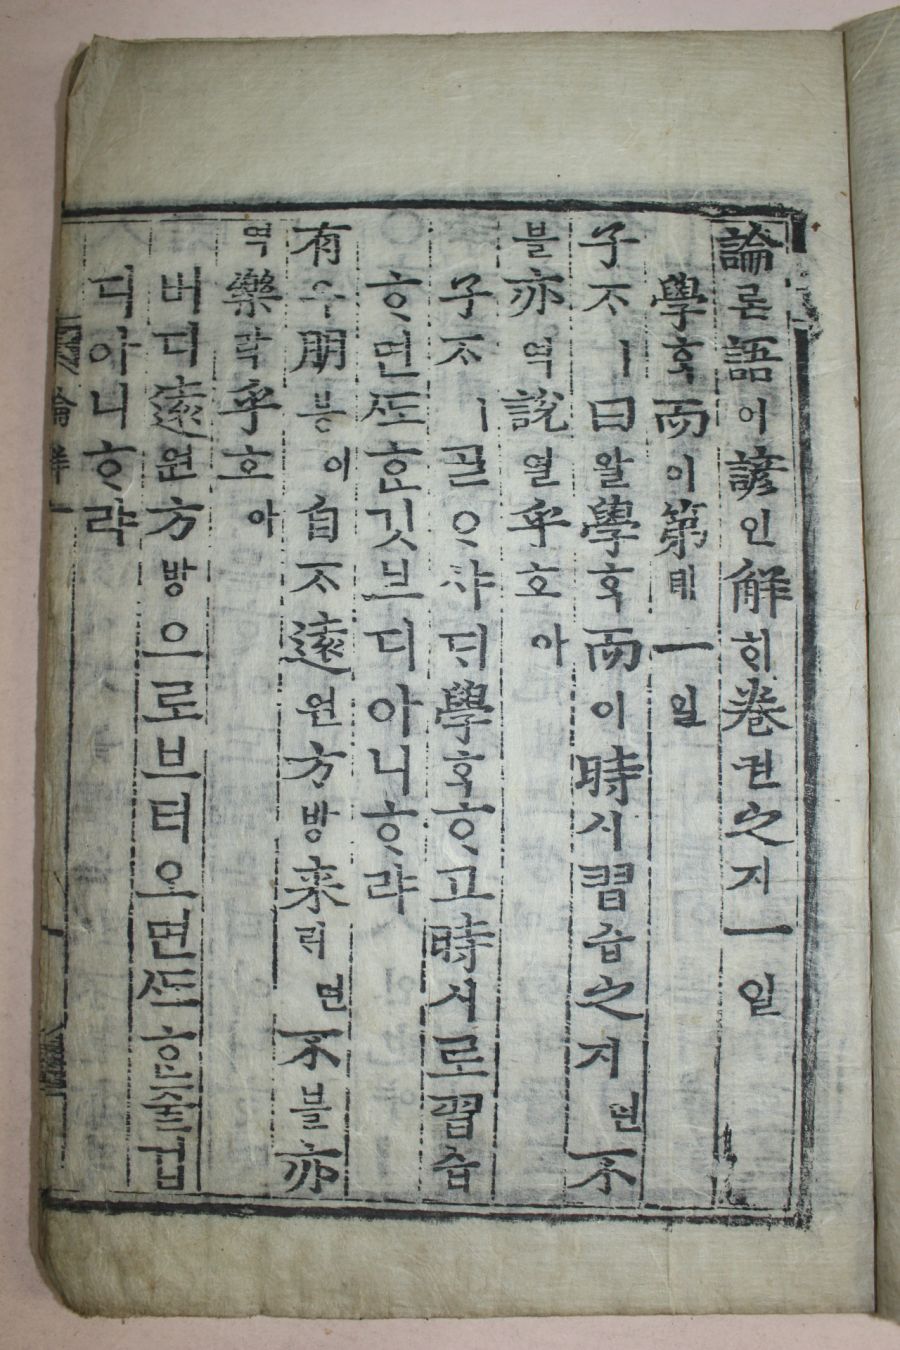 論론語어諺언解ᄒᆡ卷권之지一일
學ᄒᆞᆨ而이第뎨一일
子ᄌᆞㅣ曰왈學ᄒᆞᆨ而이時시習습之지면不
블亦역說열乎호아
子ᄌᆞㅣᄀᆞᆯᄋᆞ샤ᄃᆡ學ᄒᆞᆨᄒᆞ고時시로習습
ᄒᆞ면ᄯᅩᄒᆞᆫ깃브디아니ᄒᆞ랴
有유朋븡이自ᄌᆞ遠원方방来ᄅᆡ면不블亦
역樂락乎호아
버디遠원方방으로브터오면ᄯᅩᄒᆞᆫ즐겁
디아니ᄒᆞ랴
論解一